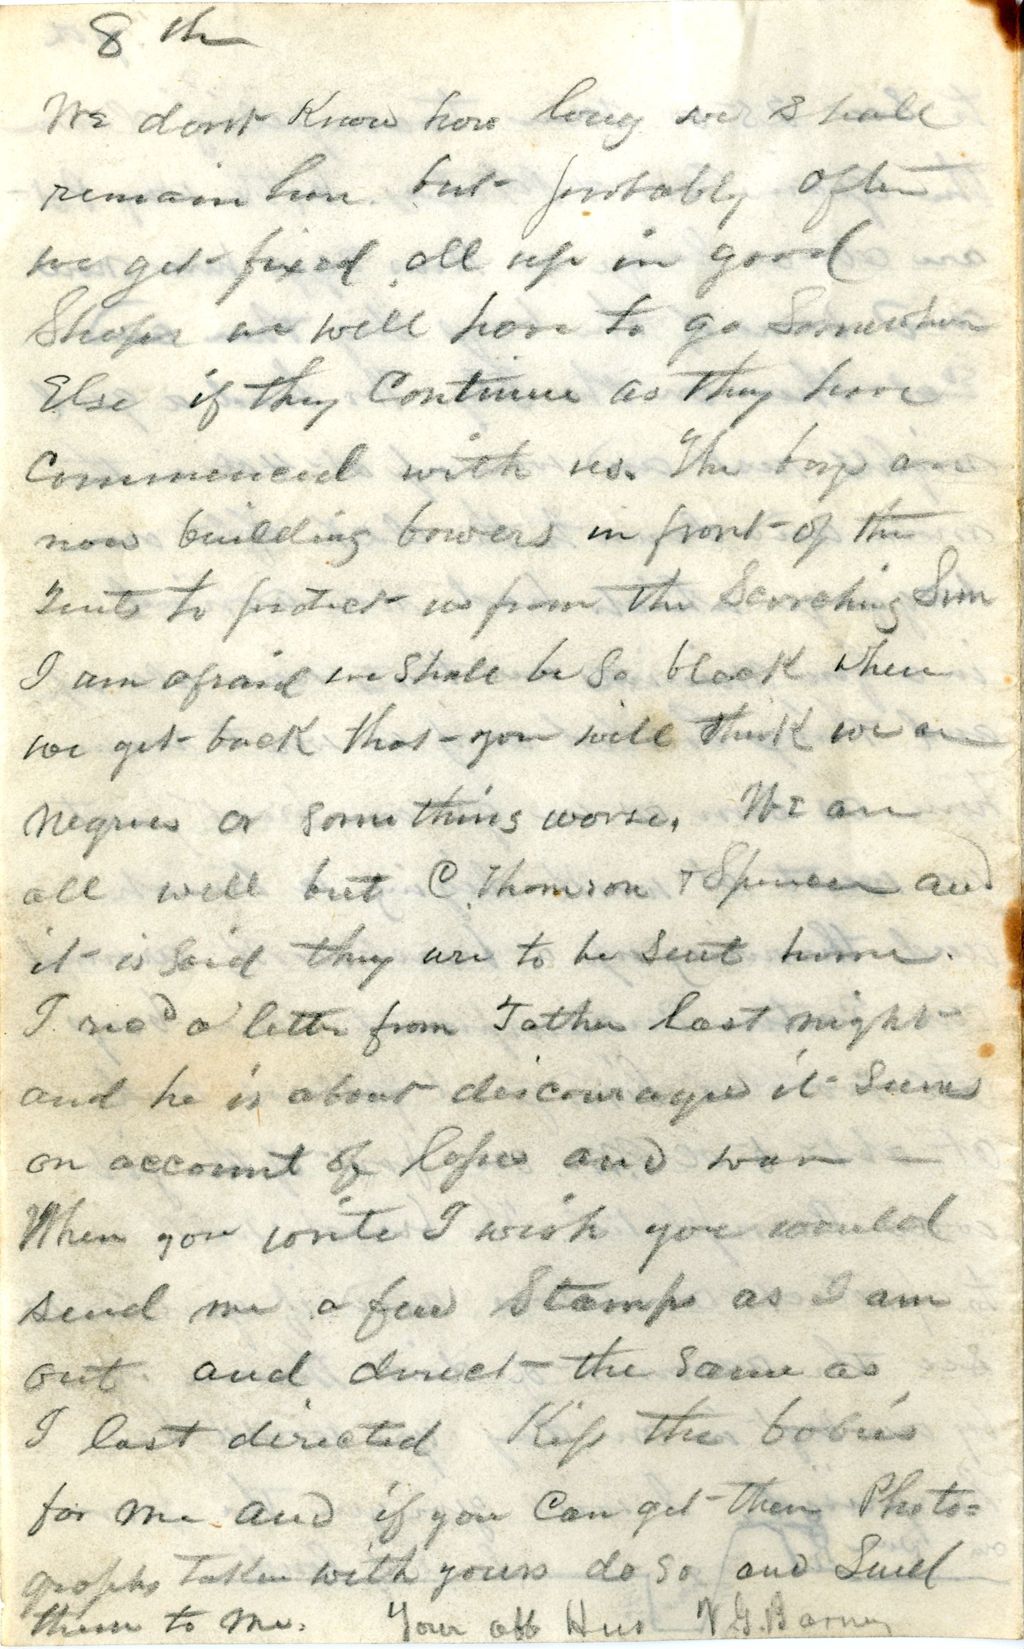 8th
We dont Know how long we shall
remain here but probably after
we get fixed all up in good
Shape we will have to go Somewhere
Else if they Continue as they have
Commenced with us. The boys are
now building bowers in front of the
Tents to protect us from the Scorching Sun
I am afraid we shall be so black when
we get back that you will think we are
Negroes or something worse. We are
all well but C. Thomson & Spencer and
it is said they are to be sent home.
I recd a letter from Father last night
and he is about discouraged it seems
on account of losses and war —
When you write I wish you would
send me a few Stamps as I am
out and direct the same as
I last directed Kiss the babies
for me and if you can get them Photo=
graphs taken with yours do so and Send
them to me. Your aff Hus V. G. Barney